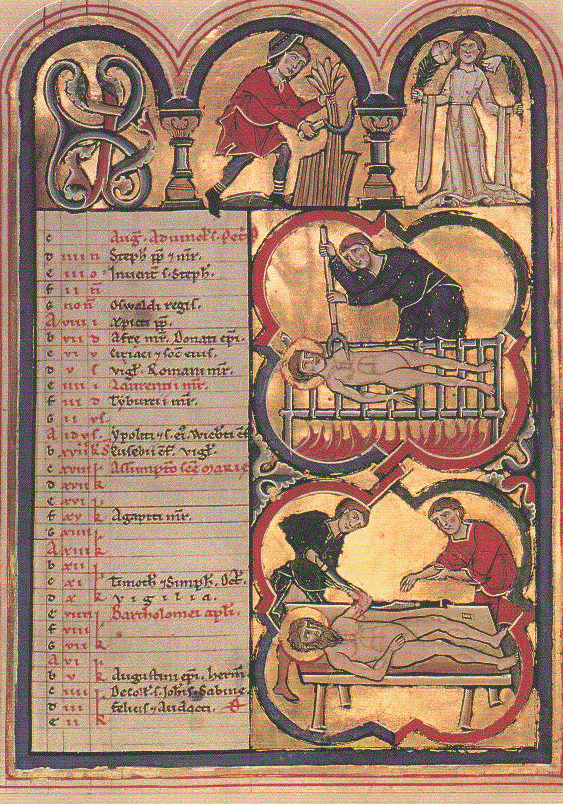 c Aug. Advincl. s. Petri
d iiii n Steph pp 7 mr.
e iii o Inuent s. Steph.
f ii n
g non Oswaldi regis.
A viii i Xpisti pp.
b vii d Afre mr. Donati epi.
c vi y Ciriaci 7 soc eius.
d v s vigl. Romani mr.
e iiii i Laurentii mr.
f iii d Tyburcii mr.
g ii
A idus. Ypoliti 7 s.
b xviiii Eusebii cf. vigl.
c xviii Assumptio sce Marie
d xvii k
e xvi
f xv k Agapiti mr.
g xiiii
A xiii k
b xii
c xi Timoth 7 Simph. Oct.
d x k vigilia.
e viiii Bartholomei apli.
f viii
g vii k
A vi
b v k Augustini epi. herm
c iiii Decoll. s. Johis. Sabine
d iii k felicis 7 Audacti.
e ii k